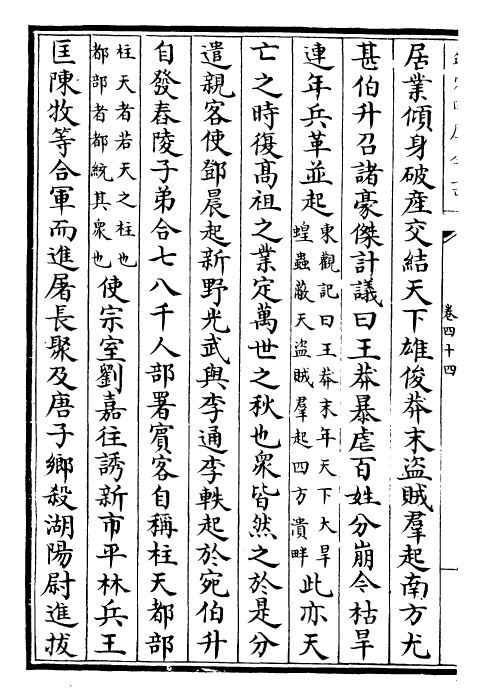 卷四十四
居業傾身破産交結天下雄俊莽末盜賊羣起南方尤
甚伯升召諸豪傑計議曰王莽暴虐百姓分崩今枯旱
連年兵革並起東觀記曰王莽末年天下大旱蝗蟲蔽天盜賊羣起四方潰畔此亦天
亡之時復高祖之業定萬世之秋也衆皆然之於是分
遣親客使鄧晨起新野光武與李通李軼起於宛伯升
自發舂陵子弟合七八千人部署賓客自稱柱天都部
柱天者若天之柱也都部者都統其衆也使宗室劉嘉往誘新市平林兵王
匡陳牧等合軍而進屠長聚及唐子鄉殺湖陽尉進拔